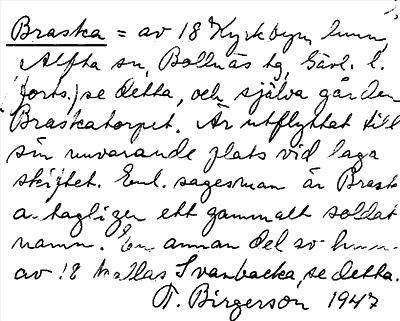 Braska = av 18 Kyrkbyn hmn,
Alfta sn, Bollnäs tg, Gävl. l.
(forts.) se detta, och själva gården
Braskatorpet. Är utflyttat till
sin nuvarande plats vid laga
skiftet. Enl. sagesman är Brask
a. tagligen ett gammalt soldat
namn. En annan del av hmn.
av 18 kallas Svanbacka, se detta.
T. Birgerson 1947